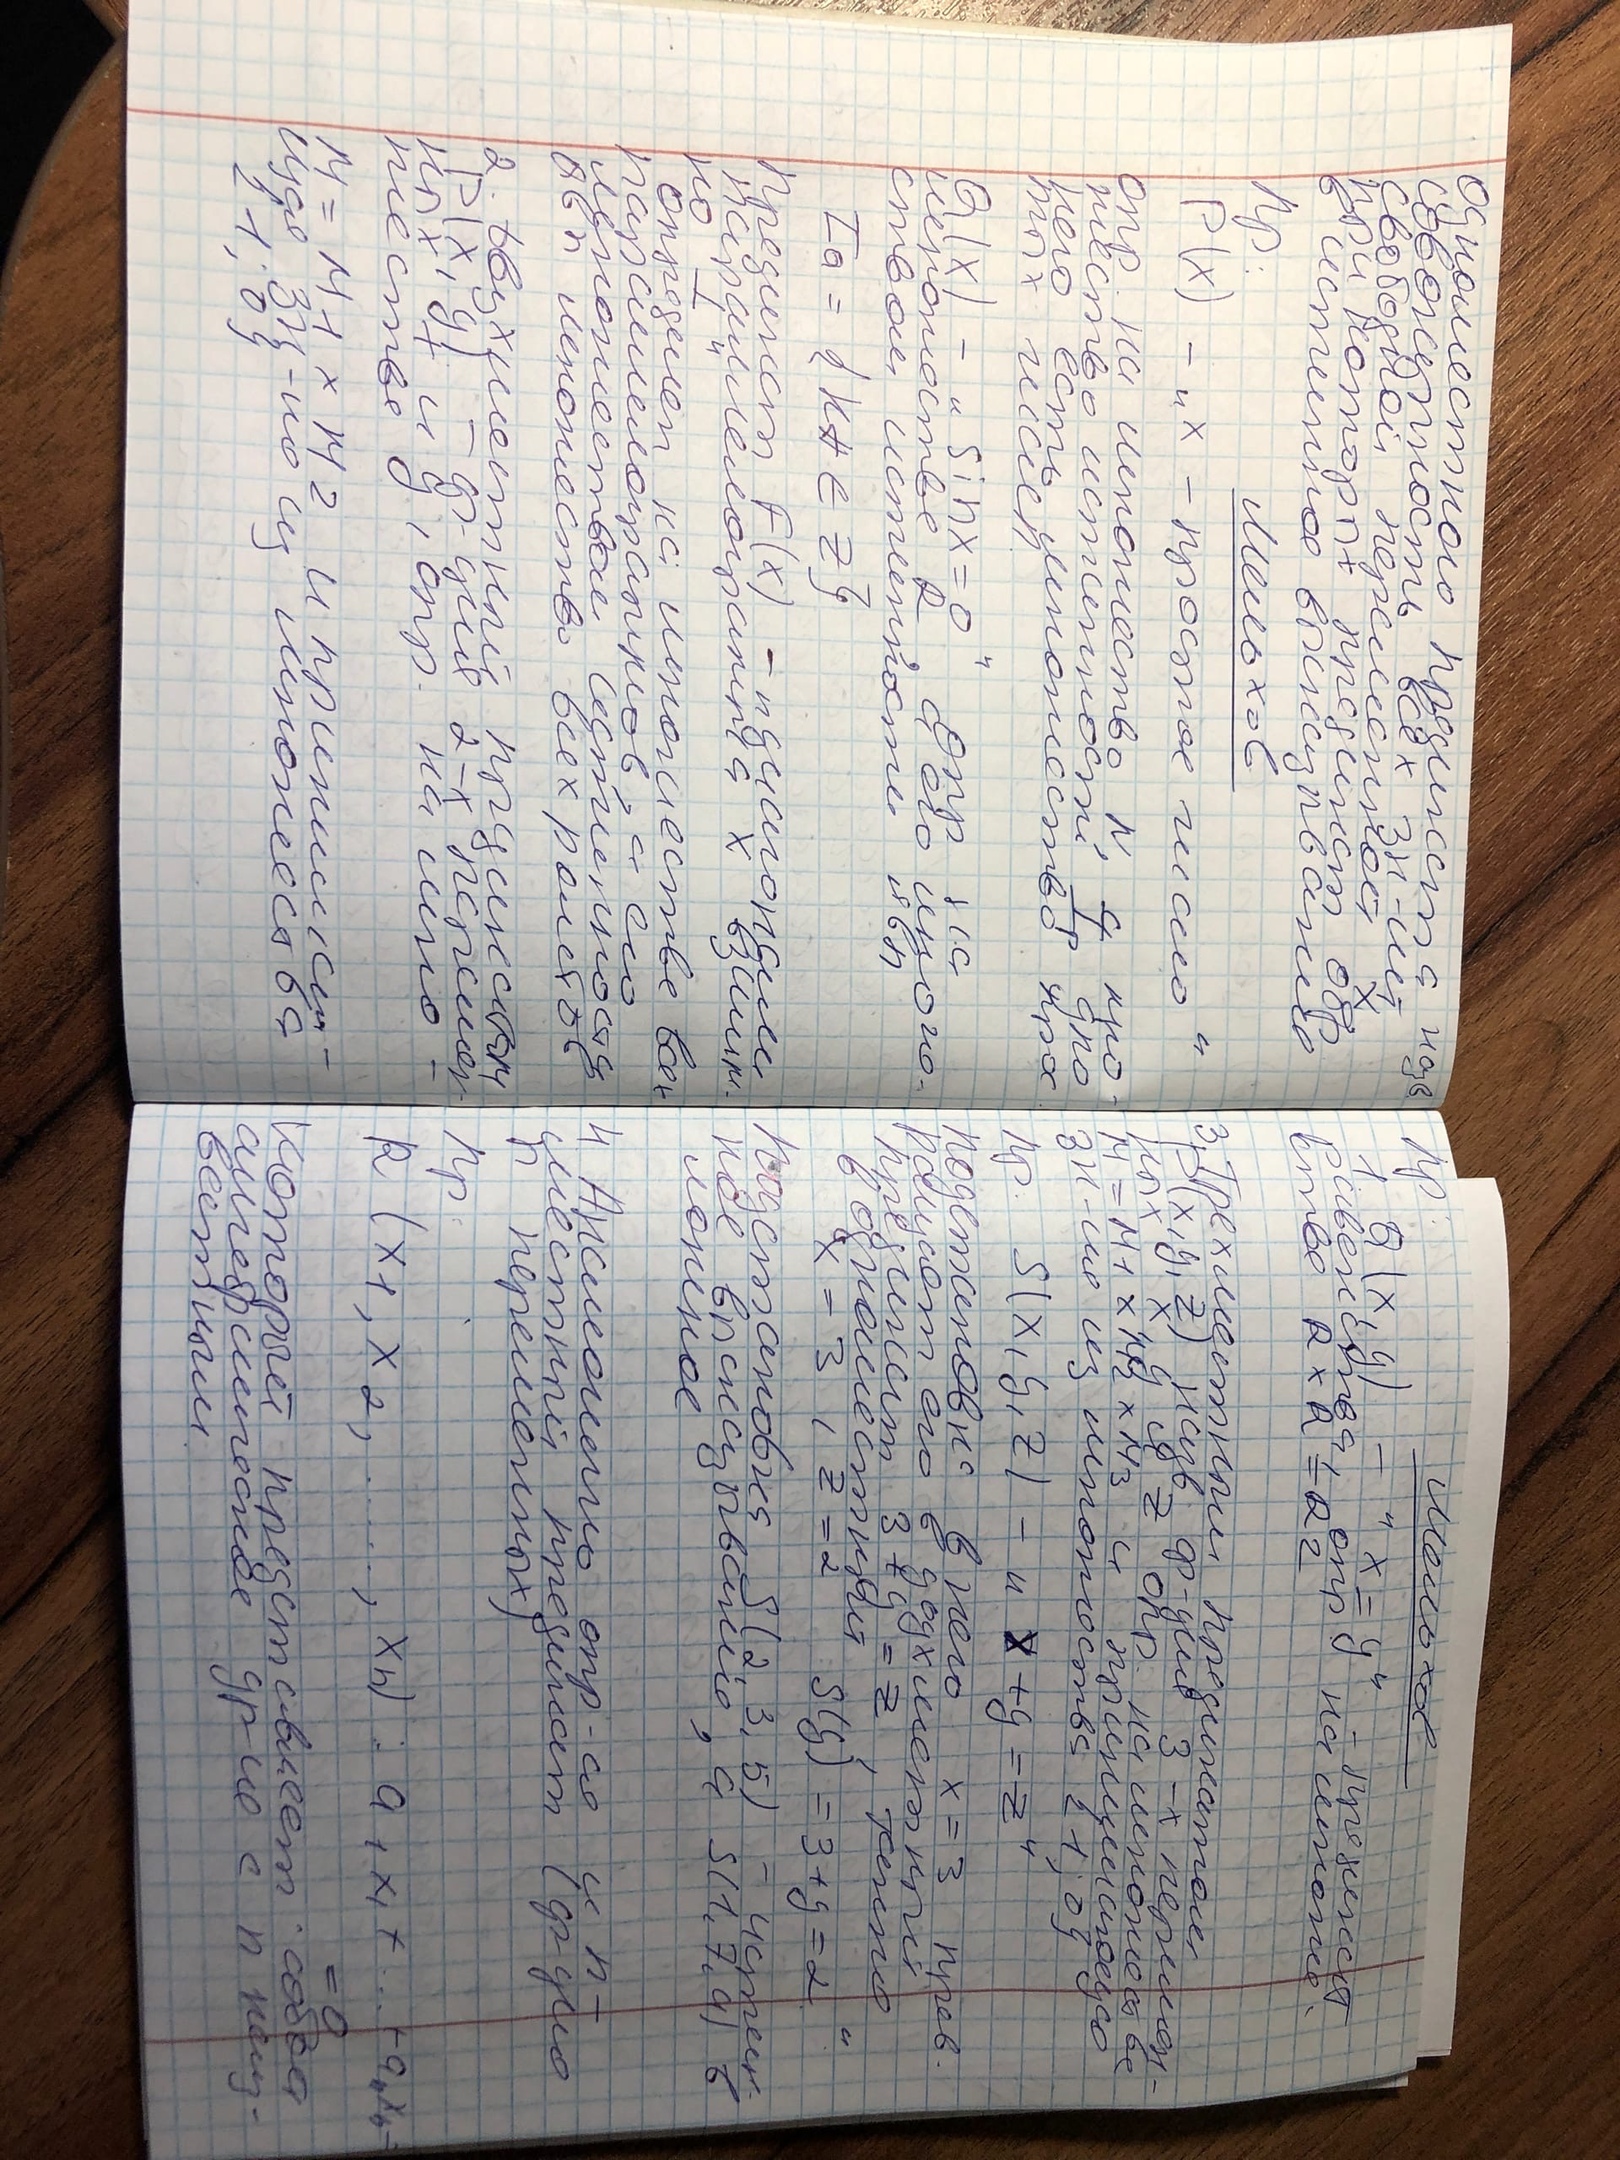 одноместного предиката назв.
совокупность всех зн-ий
свободной переменной x,
при которых предикат обр
в истинное высказывание
Пр:
Мельхов
P(x) - „x - простое число"
опр. на множество N, а мно-
жество истинности Ip для
него есть множество прос
тых чисел.
Q(x) - „sinx=0" опр на
множестве R, а его множе-
ством истинности явл
IQ = { ∈ Z}
Предикат F(x) - „диагонали
параллелограмма x взаим-
но ⊥"
определен на множестве всех
параллелограммов, а его
множеством истинности
явл множество всех ромбов
2. Двухместный предикатом
P(x, y) - ф-ция 2-х перемен-
ных x и y, опр. на мно-
жестве
M = M1 × M2 и принимаю-
щая зн-ие из множества
{1; 0}
Пр:
Мельхов
1. Q(x, y) - „x = y" - предикат
равенства, опр на множе-
стве R × R = R2
3. Трехместным предикатом
P(x, y, z) назв ф-ция 3-х перемен-
ных x, y и z опр. на множестве
M = M1 × M2 × M3 и принимающую
зн-ие из множества {1; 0}
Пр. S(x, y, z) - „x + y = z"
подстановка в него x = 3 прев.
ращает его в двухместный
предикат 3 + y = z, также
в одноместный
x = 3, z = 2 S(y) = 3 + y = 2"
Подстановка S(2, 3, 5) - истин-
ное высказывание, а S(1, 7, 9) в
ложное
4 Аналогично опр-ся и n-
местный предикат (ф-ция
n переменных)
Пр:
R (x1, x2, ......, xn) : a1x1 + ... + anxn =
= 0
который представляет собой
алгебраическое ур-ие с n неиз-
вестным.